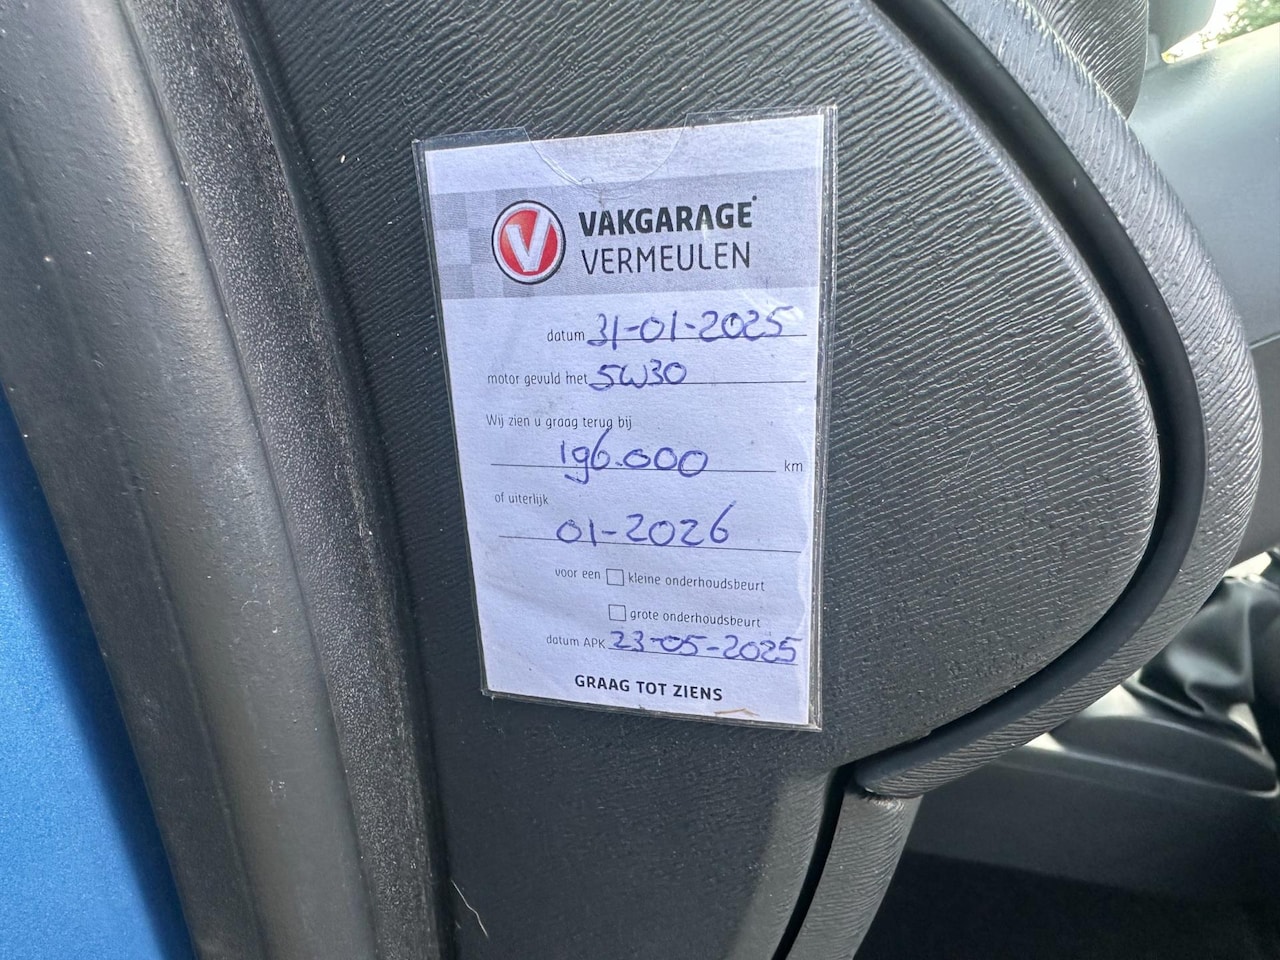 V
VAKGARAGE
VERMEULEN
datum 31-01-2025
motor gevuld met 5W30
Wij zien u graag terug bij
196.000 km
of uiterlijk
01-2026
voor een kleine onderhoudsbeurt
grote onderhoudsbeurt
datum APK 23-05-2025
GRAAG TOT ZIENS